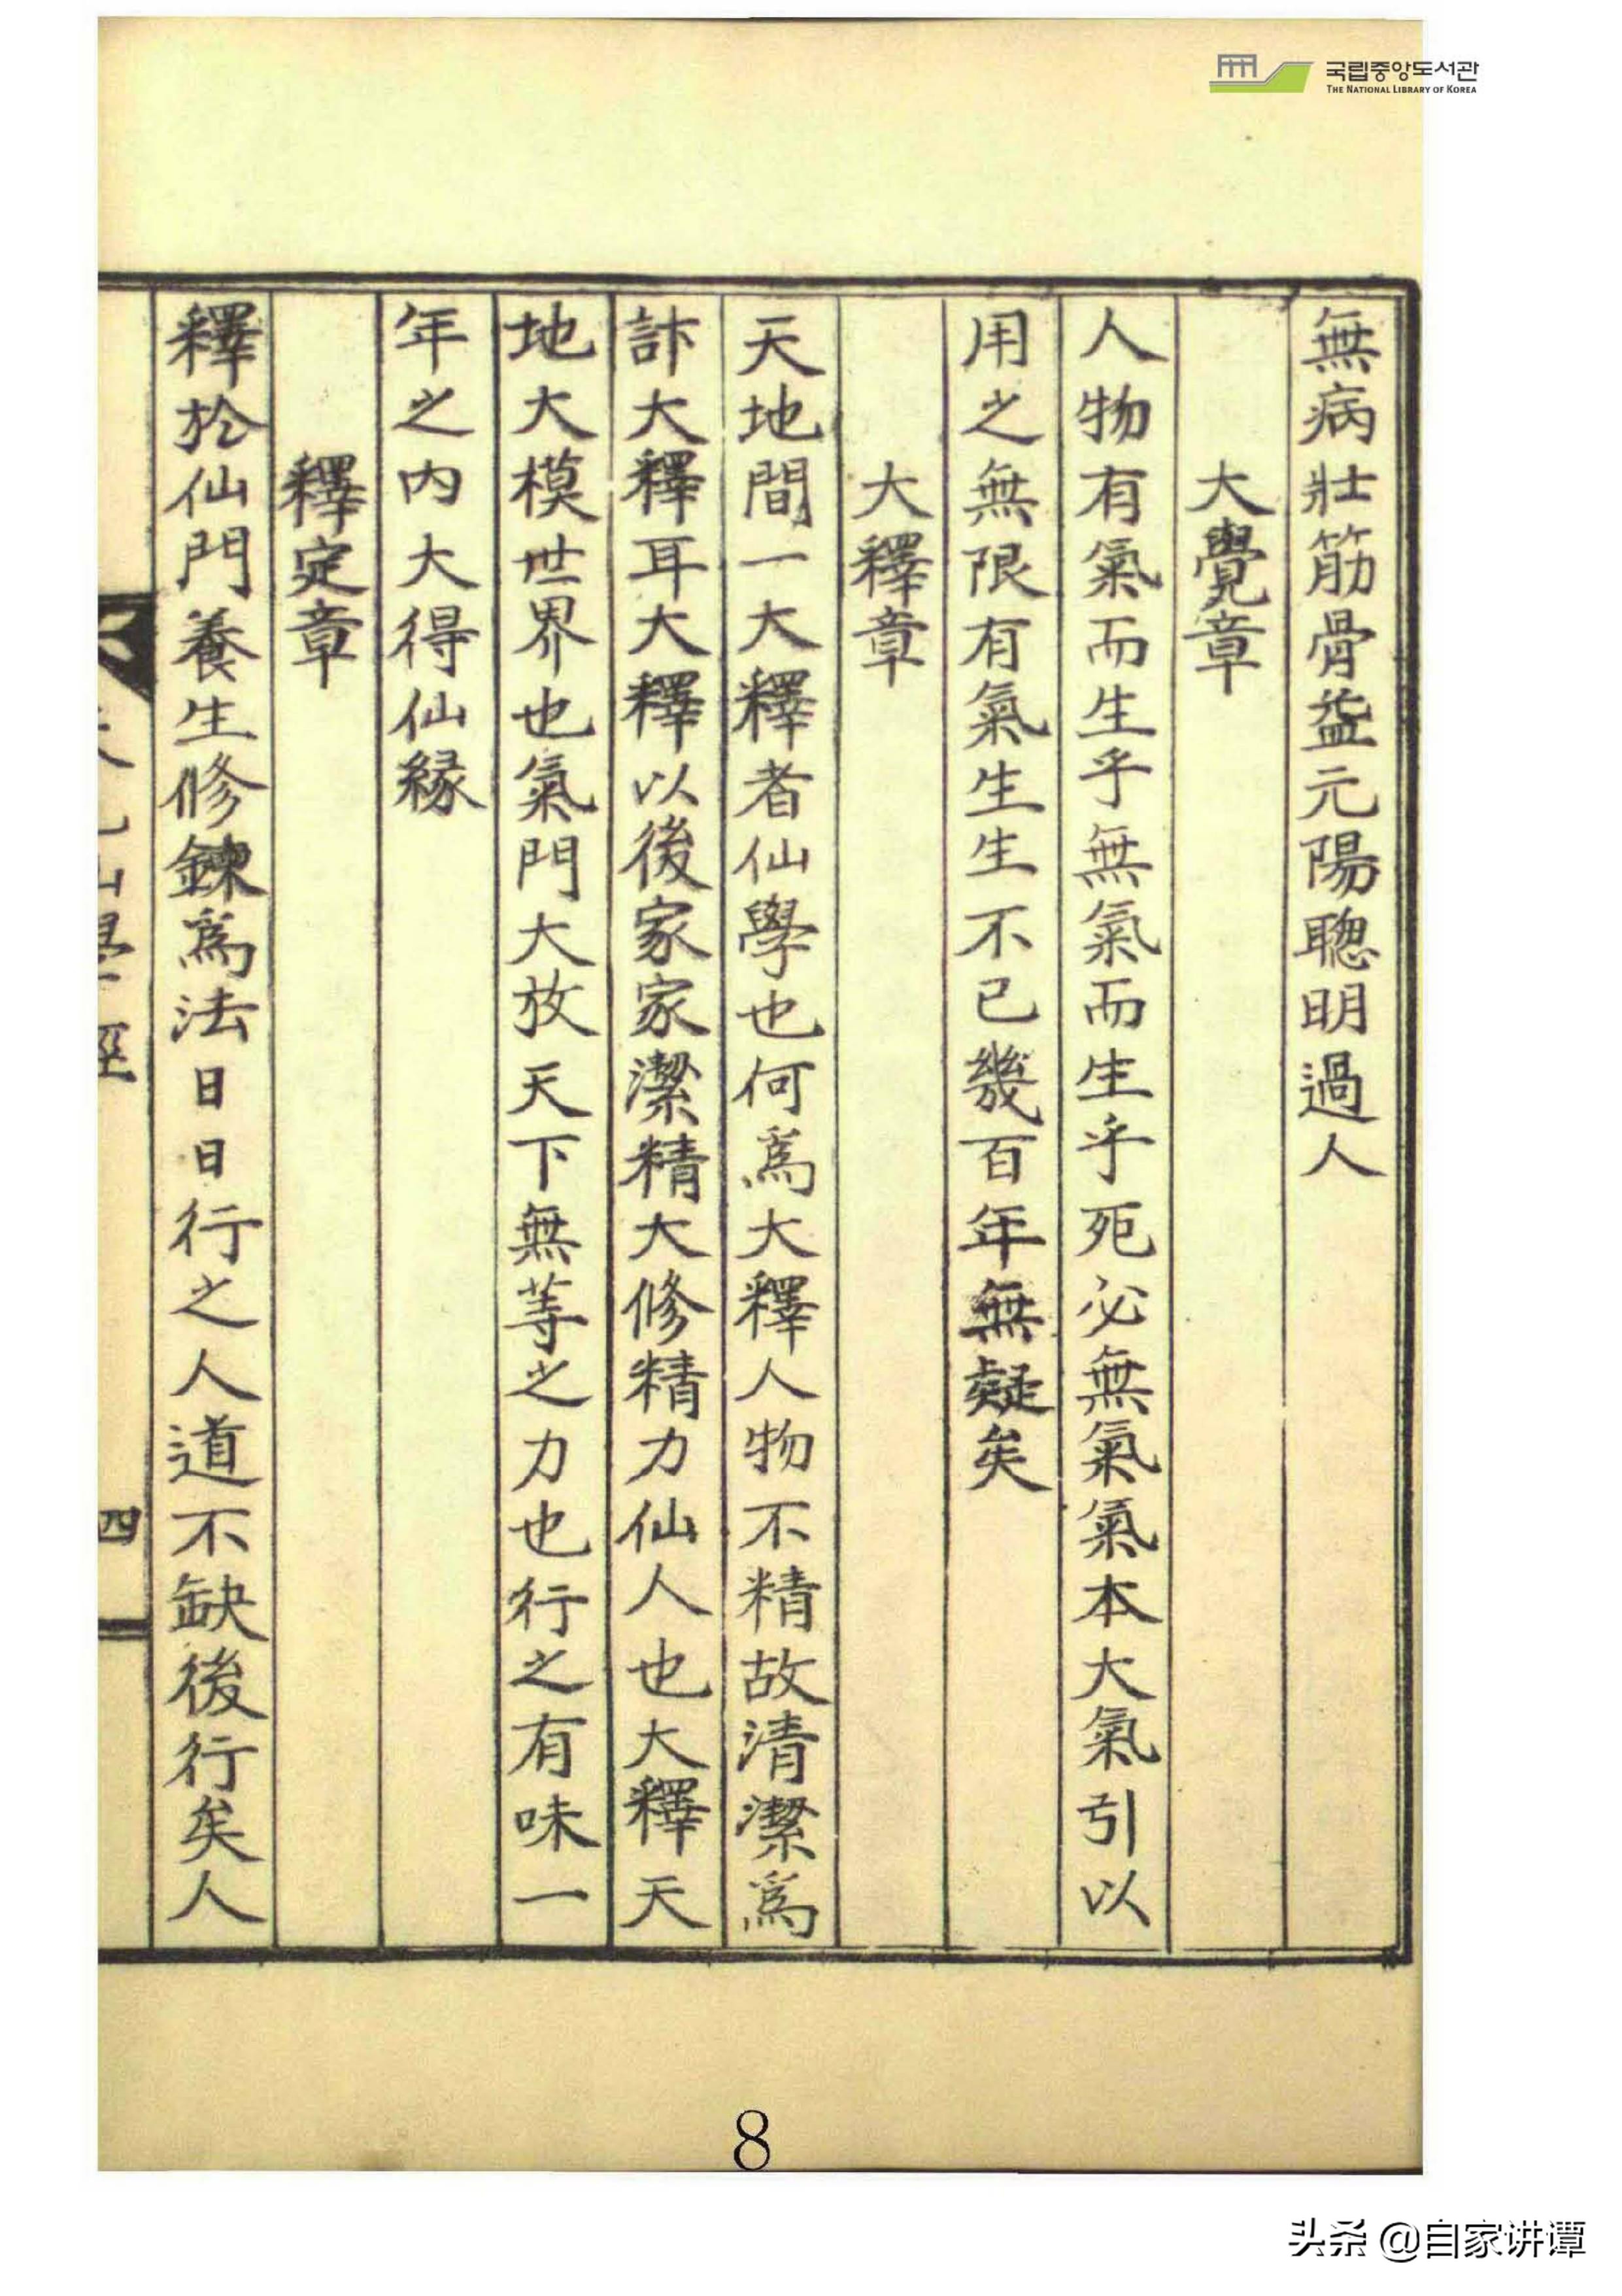 국립중앙도서관
THE NATIONAL LIBRARY OF KOREA
無病壯筋骨益元陽聰明過人
大覺章
人物有氣而生乎無氣而生乎死必無氣氣本大氣引以
用之無限有氣生生不已幾百年無疑矣
大釋章
天地間一大釋者仙學也何爲大釋人物不精故清潔爲
訃大釋耳大釋以後家家潔精大修精力仙人也大釋天
地大模世界也氣門大放天下無等之力也行之有味一
年之內大得仙緣
釋定章
釋於仙門養生修鍊爲法日日行之人道不缺後行矣人
四
8
头条 @自家讲谭